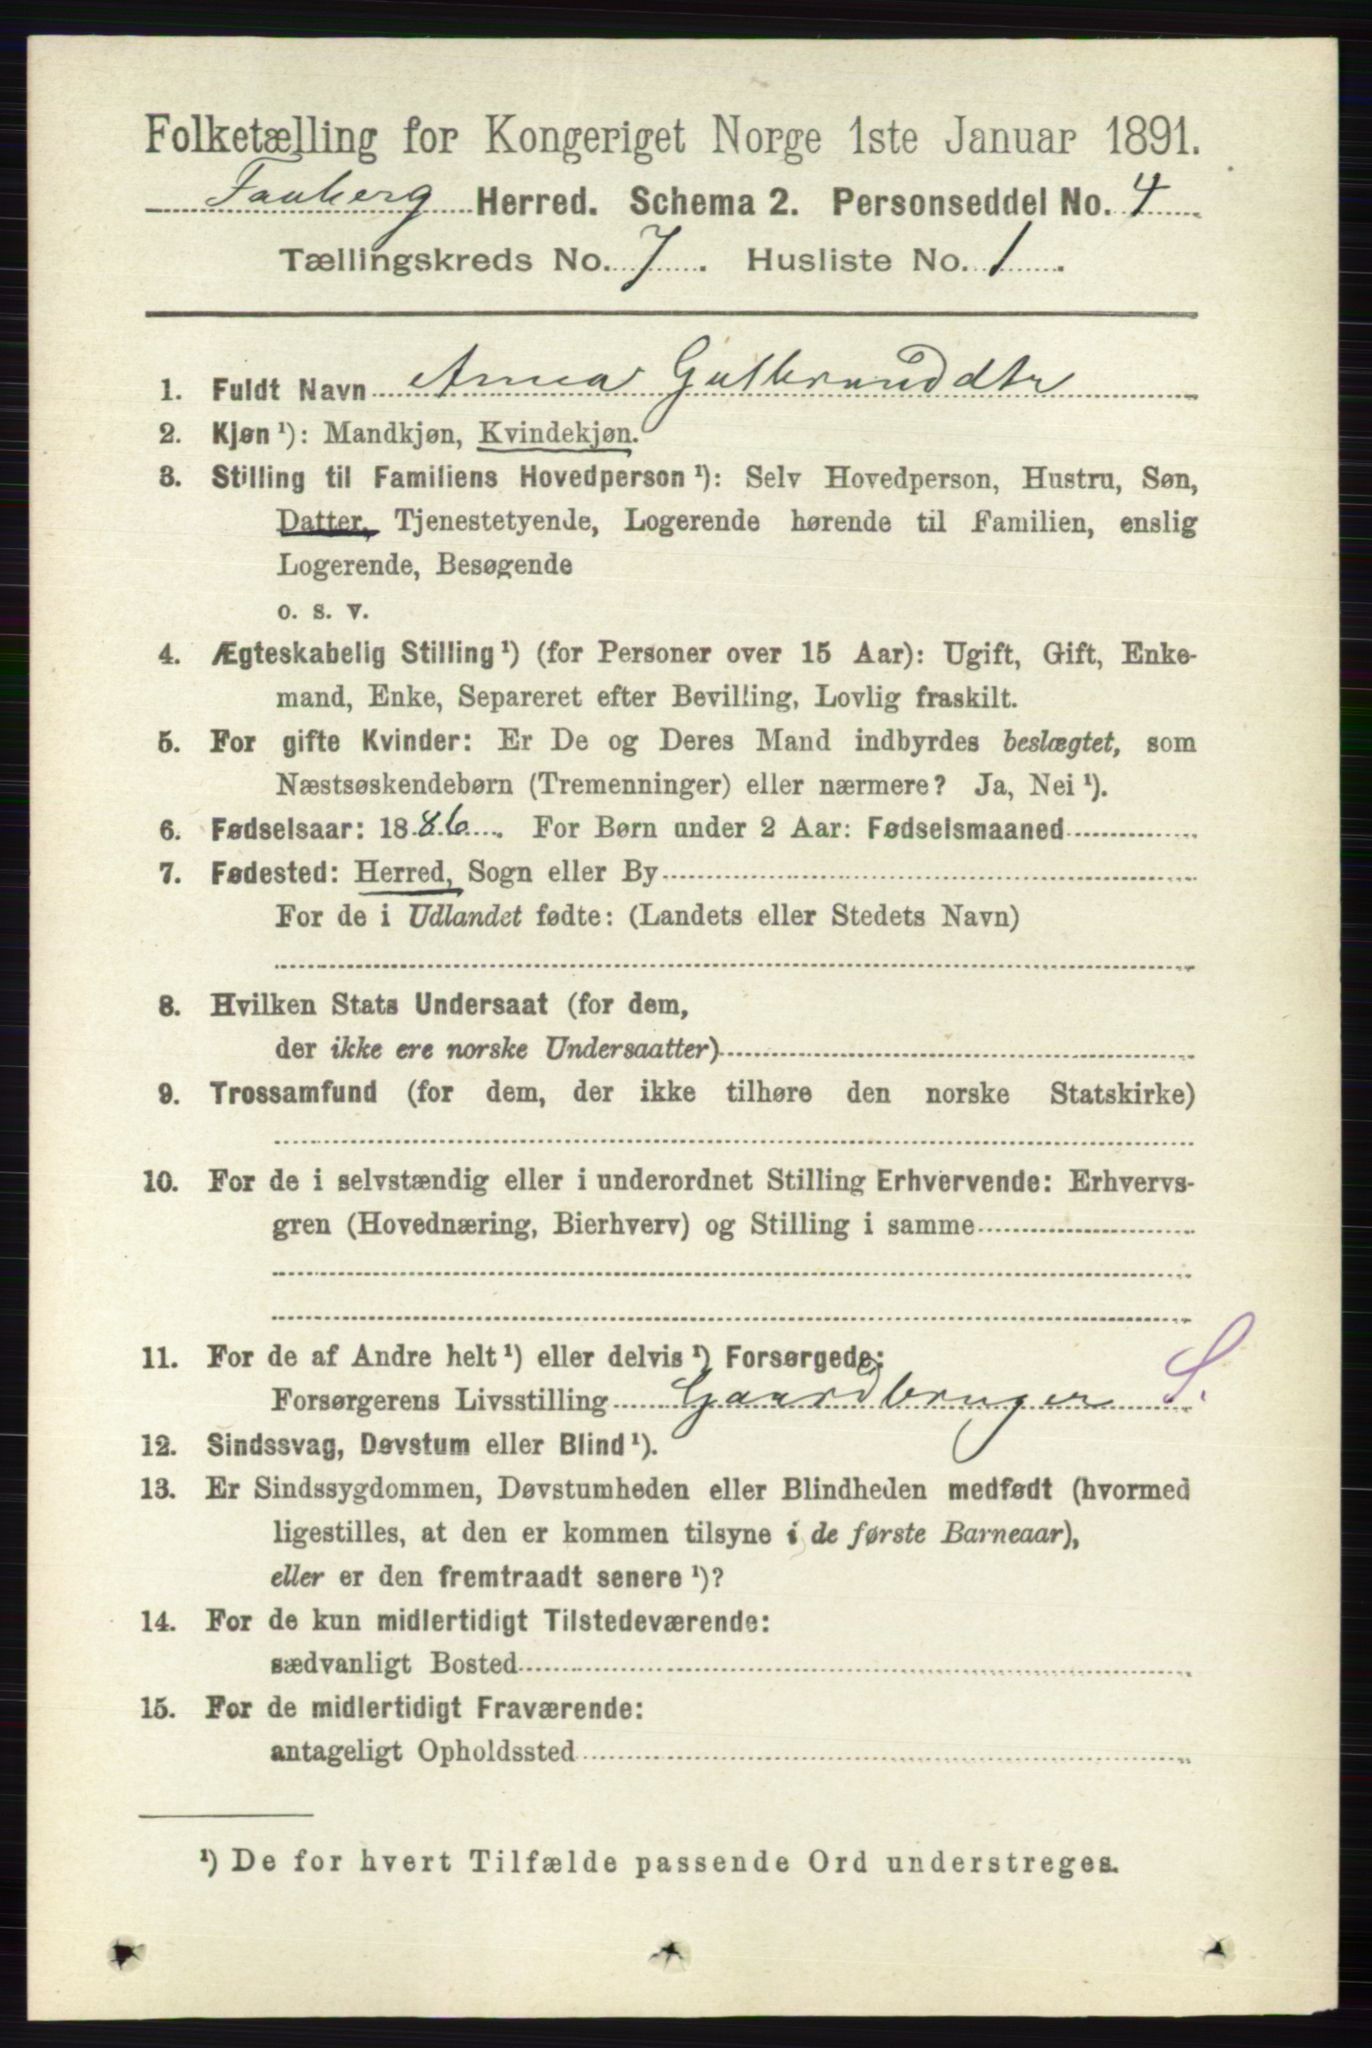 Folketælling for Kongeriget Norge 1ste Januar 1891.
Faaberg Herred. Schema 2. Personseddel No. 4
Tællingskreds No. 7. Husliste No. 1.
1. Fuldt Navn Anna Gulbranddtr
2. Kjøn ¹): Mandkjøn, Kvindekjøn.
3. Stilling til Familiens Hovedperson ¹): Selv Hovedperson, Hustru, Søn,
Datter, Tjenestetyende, Logerende hørende til Familien, enslig
Logerende, Besøgende
o. s. v.
4. Ægteskabelig Stilling ¹) (for Personer over 15 Aar): Ugift, Gift, Enke-
mand, Enke, Separeret efter Bevilling, Lovlig fraskilt.
5. For gifte Kvinder: Er De og Deres Mand indbyrdes beslægtet, som
Næstsøskendebørn (Tremenninger) eller nærmere? Ja, Nei ¹).
6. Fødselsaar: 1886. For Børn under 2 Aar: Fødselsmaaned
7. Fødested: Herred, Sogn eller By
For de i Udlandet fødte: (Landets eller Stedets Navn)
8. Hvilken Stats Undersaat (for dem,
der ikke ere norske Undersaatter)
9. Trossamfund (for dem, der ikke tilhøre den norske Statskirke)
10. For de i selvstændig eller i underordnet Stilling Erhvervende: Erhvervs-
gren (Hovednæring, Bierhverv) og Stilling i samme
11. For de af Andre helt ¹) eller delvis ¹) Forsørgede:
Forsørgerens Livsstilling Gaardbruger S.
12. Sindssvag, Døvstum eller Blind ¹).
13. Er Sindssygdommen, Døvstumheden eller Blindheden medfødt (hvormed
ligestilles, at den er kommen tilsyne i de første Barneaar),
eller er den fremtraadt senere ¹)?
14. For de kun midlertidigt Tilstedeværende:
sædvanligt Bosted
15. For de midlertidigt Fraværende:
antageligt Opholdssted
¹) De for hvert Tilfælde passende Ord understreges.